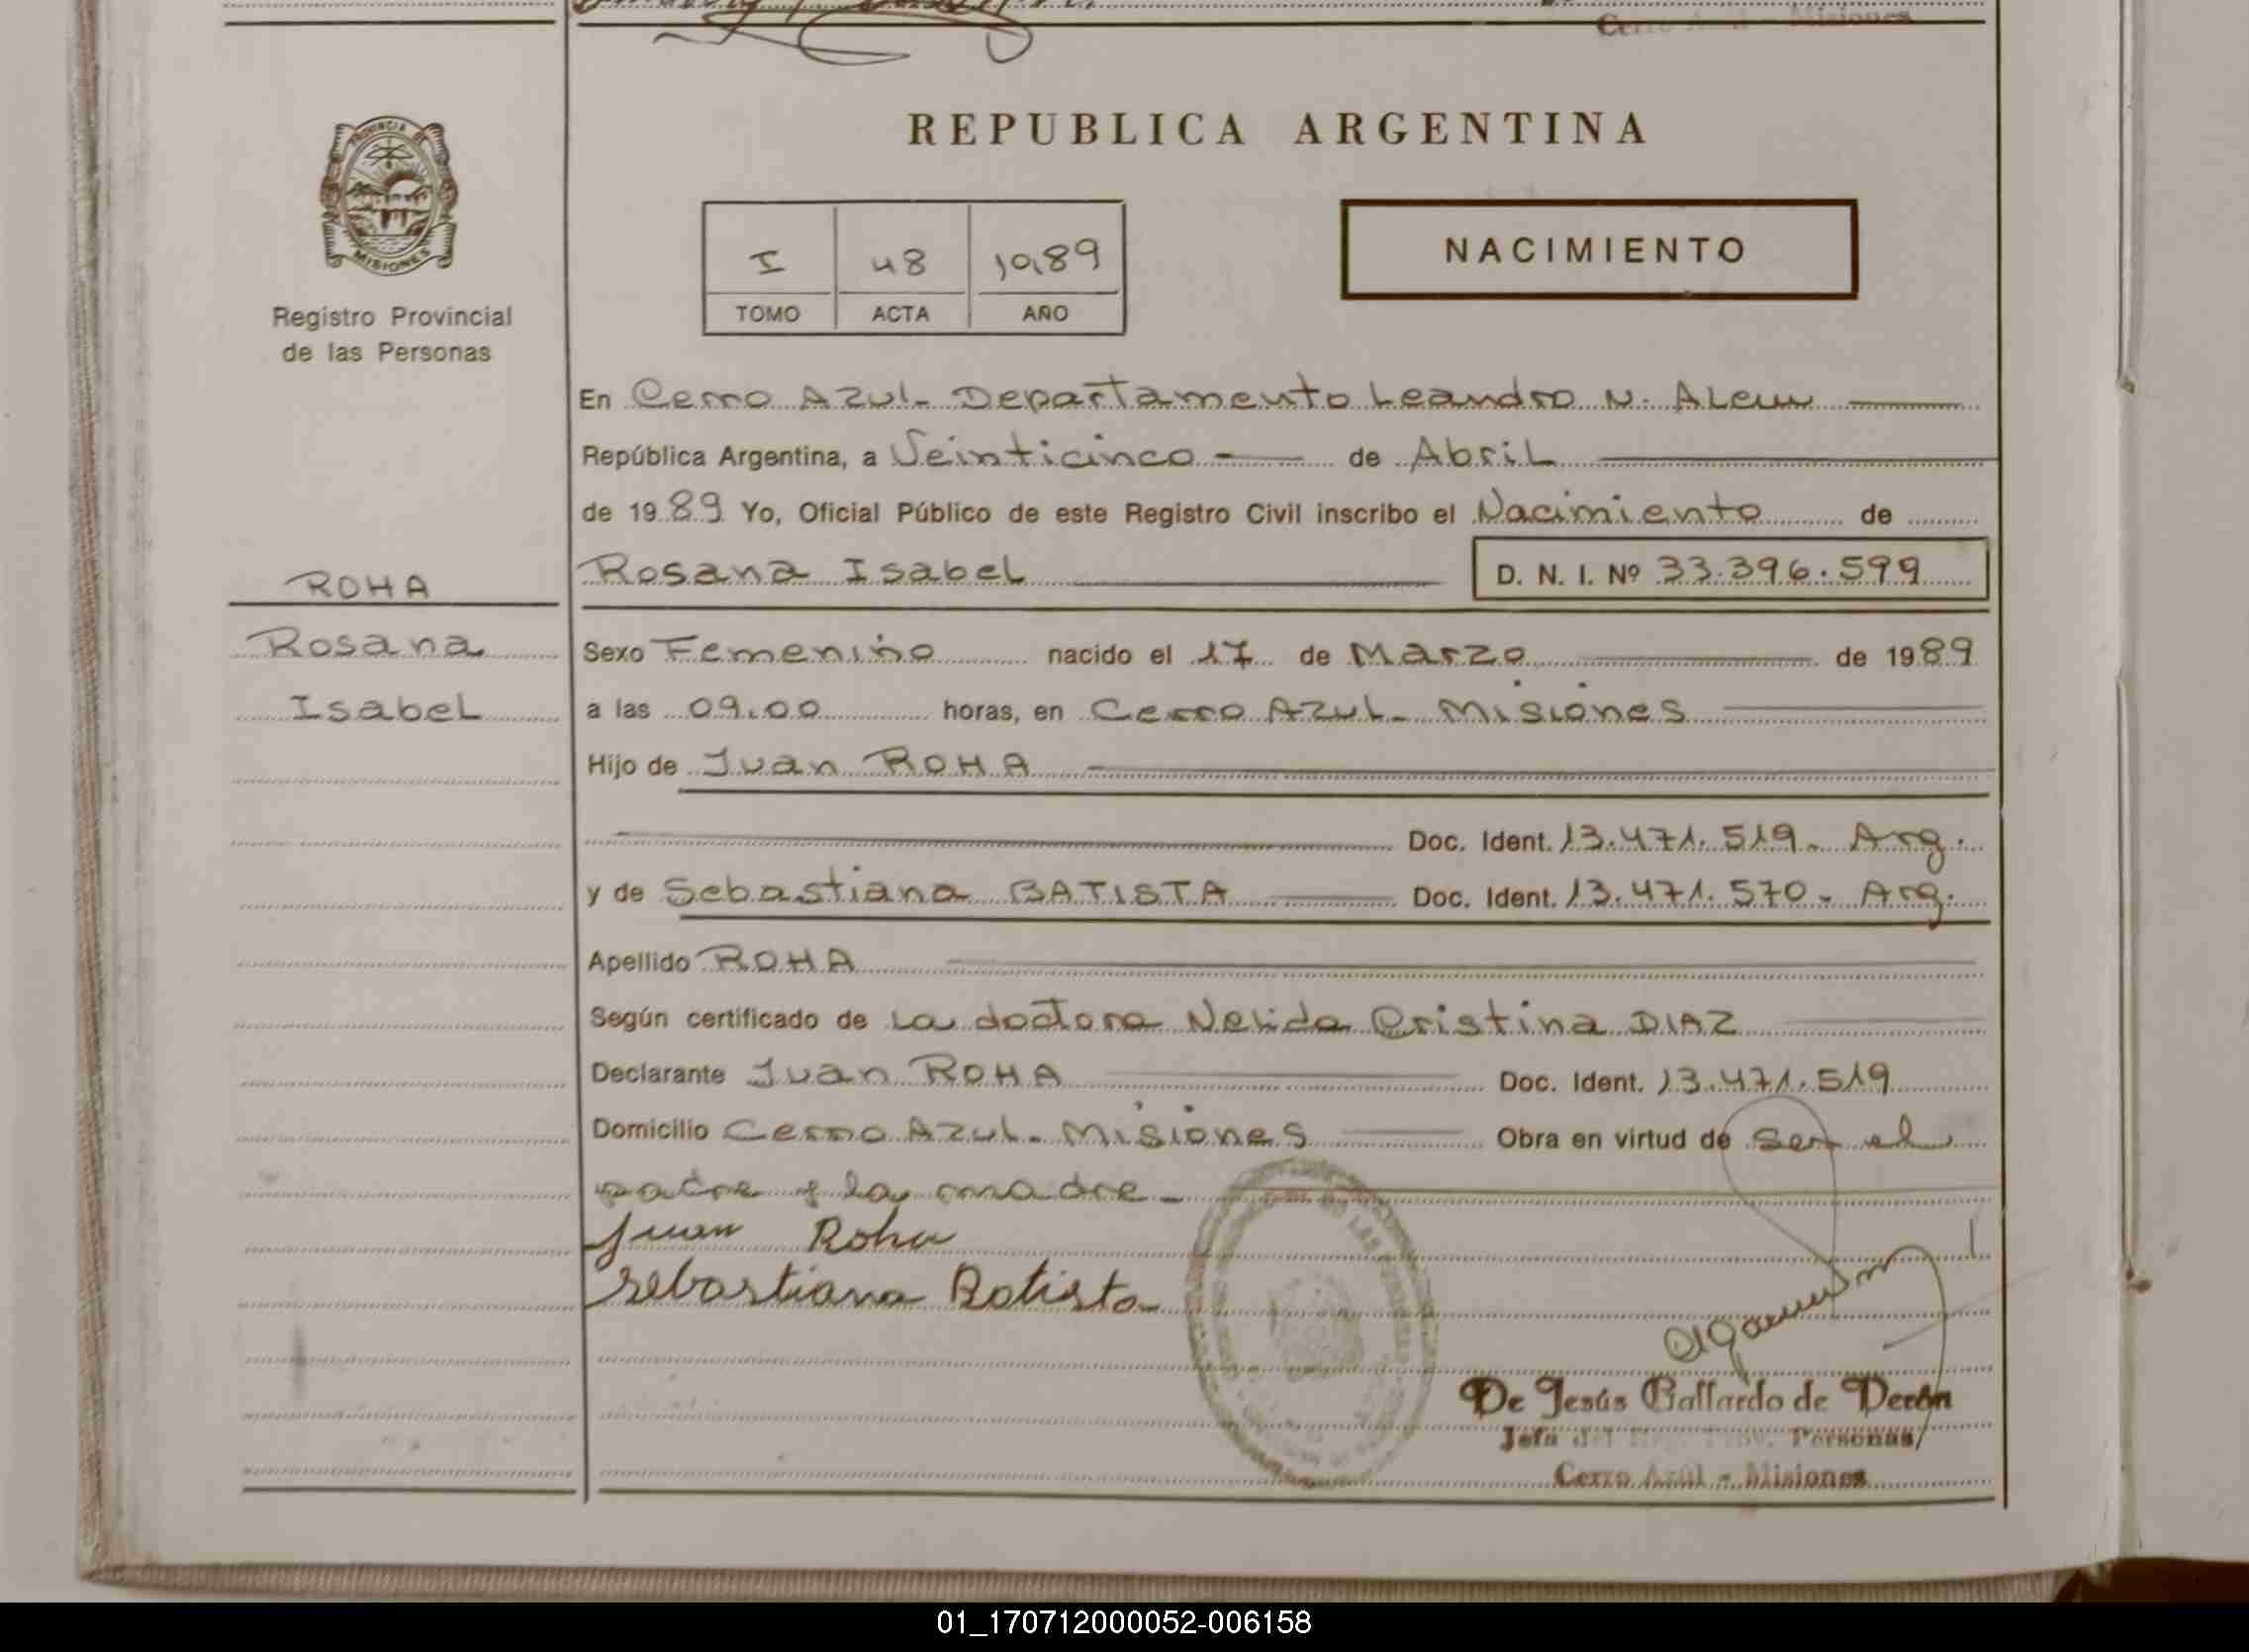 Cerro Azul - Misiones
REPUBLICA ARGENTINA
PROVINCIA DE
MISIONES
Registro Provincial
de las Personas
I 48 1989
TOMO ACTA AÑO
NACIMIENTO
En Cerro Azul - Departamento Leandro N. Alem
República Argentina, a Veinticinco - de Abril
de 1989 Yo, Oficial Público de este Registro Civil inscribo el Nacimiento de
Rosana Isabel D. N. I. Nº 33.396.599
ROHA
Rosana
Isabel
Sexo Femenino nacido el 17 de Marzo de 1989
a las 09.00 horas, en Cerro Azul - Misiones
Hijo de Juan ROHA
Doc. Ident. 13.471.519 - Arg.
y de Sebastiana BATISTA Doc. Ident. 13.471.570 - Arg.
Apellido ROHA
Según certificado de La doctora Nelida Cristina DIAZ
Declarante Juan ROHA Doc. Ident. 13.471.519
Domicilio Cerro Azul - Misiones Obra en virtud de ser el
padre y la madre -
Juan Roha
Sebastiana Batista
De Jesús Gallardo de Decán
Jefa del Reg. Prov. Personas
Cerro Azul - Misiones
01_170712000052-006158